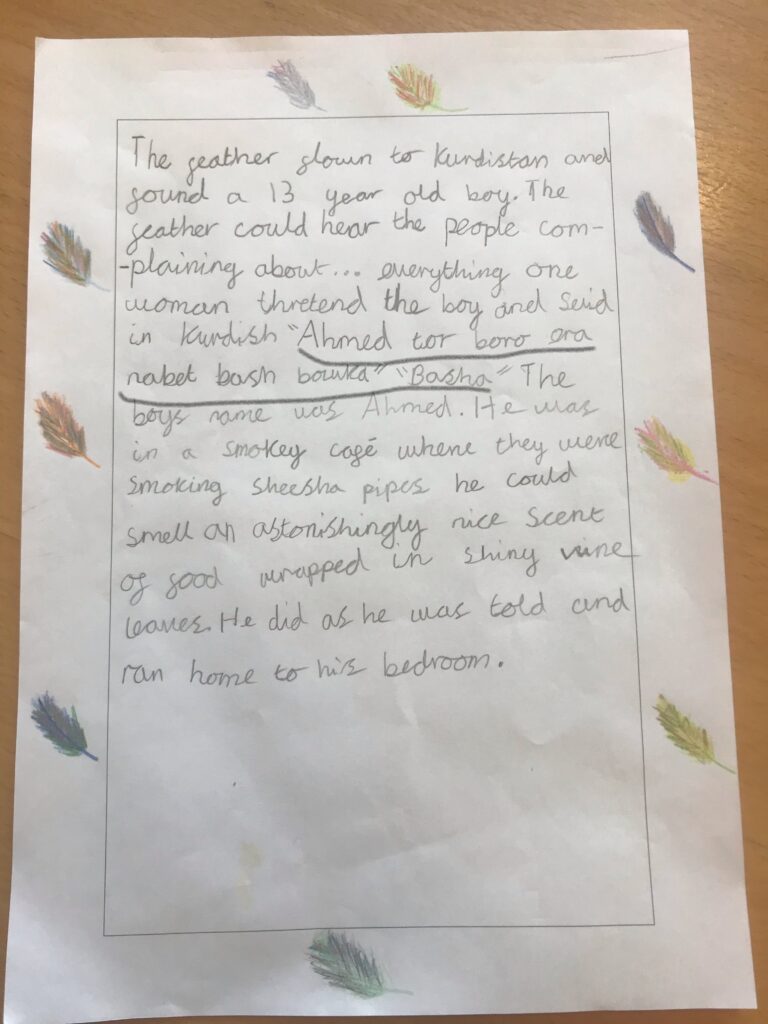 The feather flown to Kurdistan and
found a 13 year old boy. The
feather could hear the people com-
-plaining about... everything one
woman thretend the boy and seid
in Kurdish "Ahmed tor boro era
nabet bash bawka" "Basha" The
boys name was Ahmed. He was
in a smokey café where they were
smoking sheesha pipes he could
smell an astonishingly nice scent
of food wrapped in shiny vine
leaves. He did as he was told and
ran home to his bedroom.